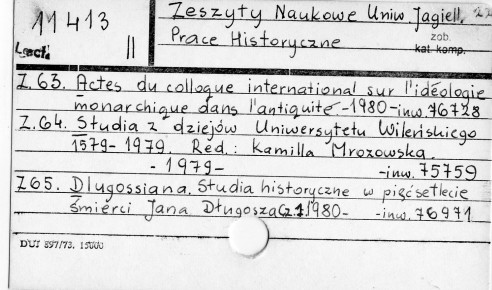 11413
II
Zeszyty Naukowe Uniw. Jagiell.
Prace Historyczne
zob.
kat. komp.
Z.63. Actes du colloque international sur l'idéologie
monarchique dans l'antiquité - 1980 - inw. 76728
Z.64. Studia z dziejów Uniwersytetu Wileńskiego
1579-1979. Red.: Kamilla Mrozowska.
- 1979 - -inw. 75759
Z65. Dlugossiana. Studia historyczne w pięćsetlecie
śmierci Jana Długosza Cz.1. 1980- -inw. 76971
DUJ 897/73. 15000